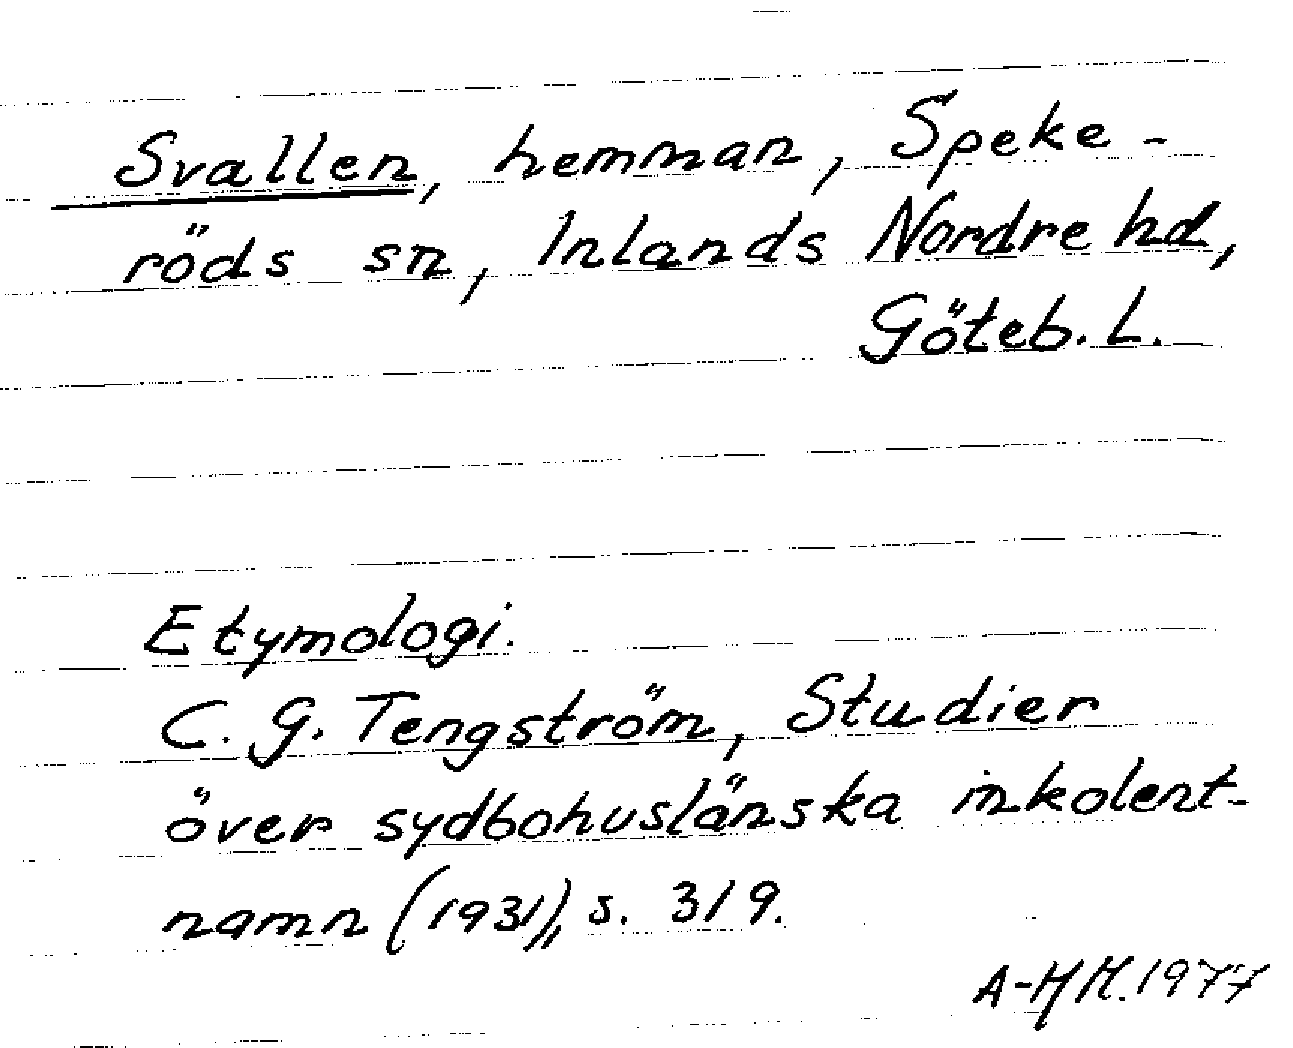 Svallen, hemman, Speke-
röds sn, Inlands Nordre hd,
Göteb. L.
Etymologi.
C. G. Tengström, Studier
över sydbohuslänska inkolent-
namn (1931), s. 319.
A-HM. 1977